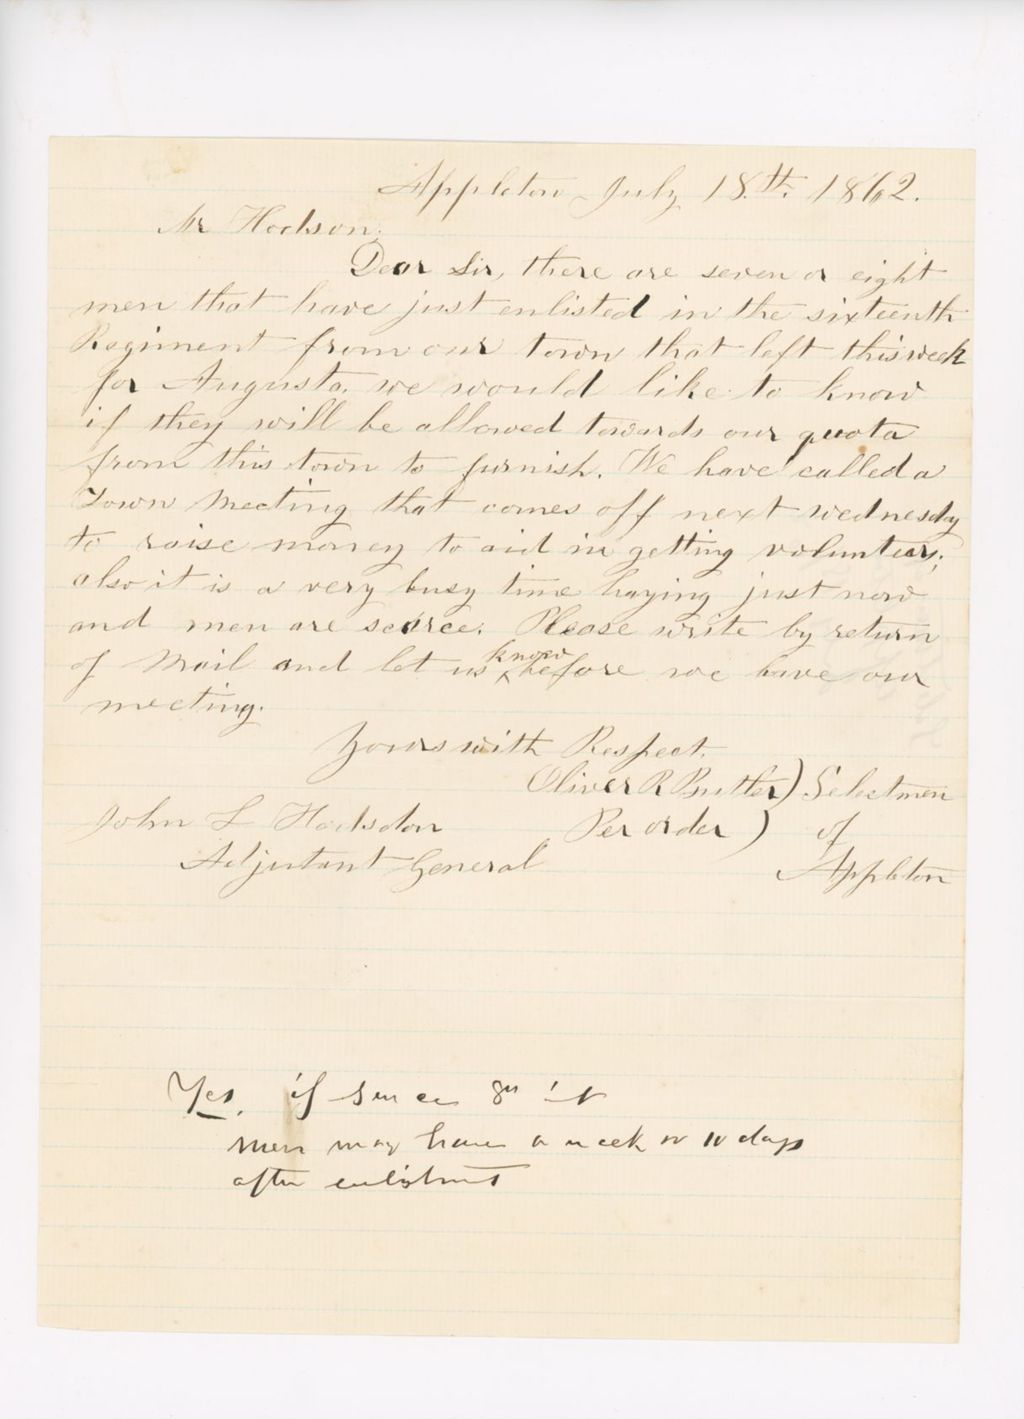 Appleton July 18.th. 1862.
Mr Hodson,
Dear Sir, there are seven or eight
men that have just enlisted in the sixteenth
Regiment from our town that left this week
for Augusta, we would like to know
if they will be allowed towards our quota
from this town to furnish. We have called a
Town Meeting that comes off next wednesday
to raise money to aid in getting volunteers;
also it is a very busy time haying just now
and men are scarce. Please write by return
of Mail and let us know before we have our
meeting.
Yours with Respect.
Oliver R Butler ) Selectmen
John L Hodsdon Per order ) of
Adjutant General Appleton
Yes, if since
men may have a week or 10 days
after enlistment